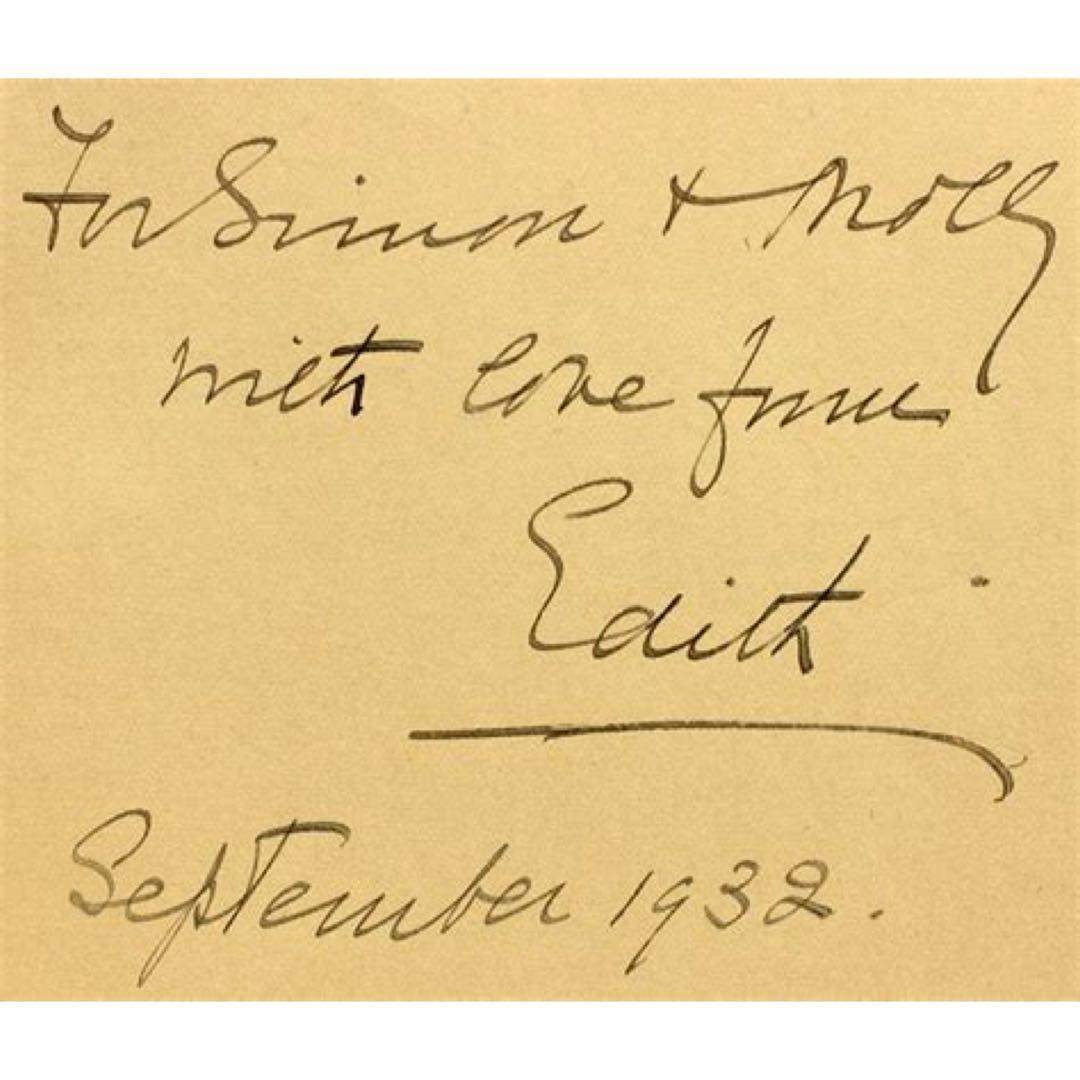 For Simon + Molly
with love from
Edith
September 1932.